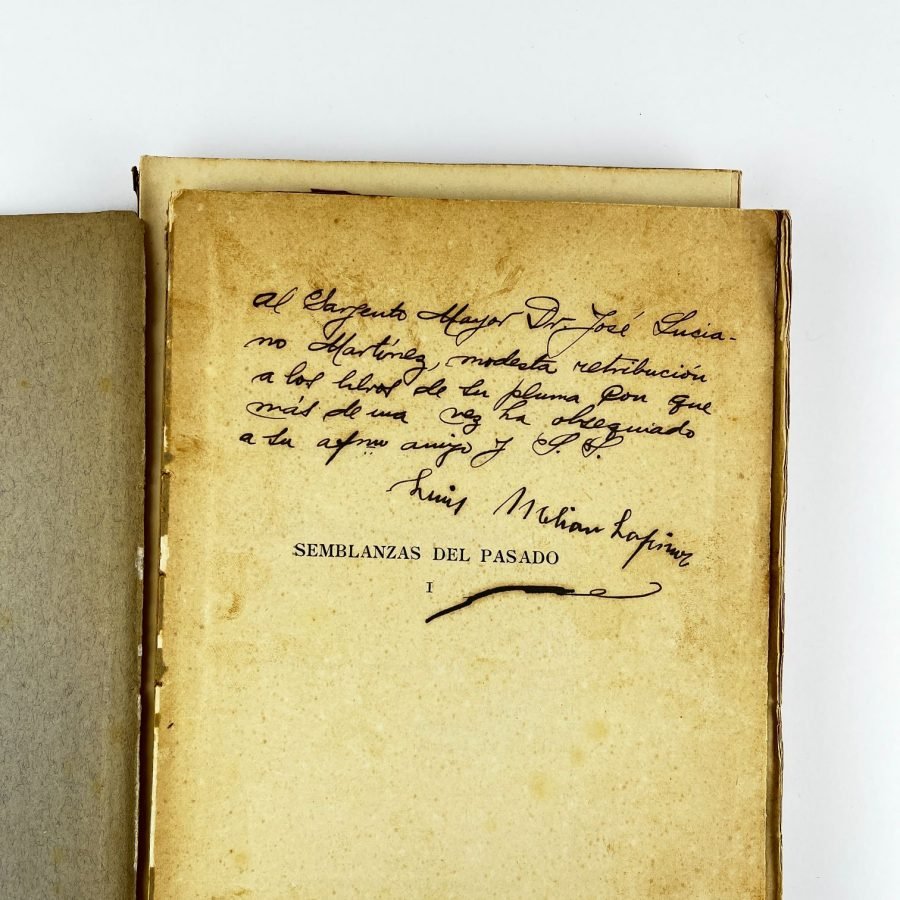 Al Sargento Mayor Dr. José Lucia-
no Martínez, modesta retribución
a los libros de su pluma con que
más de una vez ha obsequiado
a su afmo amigo y S. S.
Luis Melian Lafinur
SEMBLANZAS DEL PASADO
I